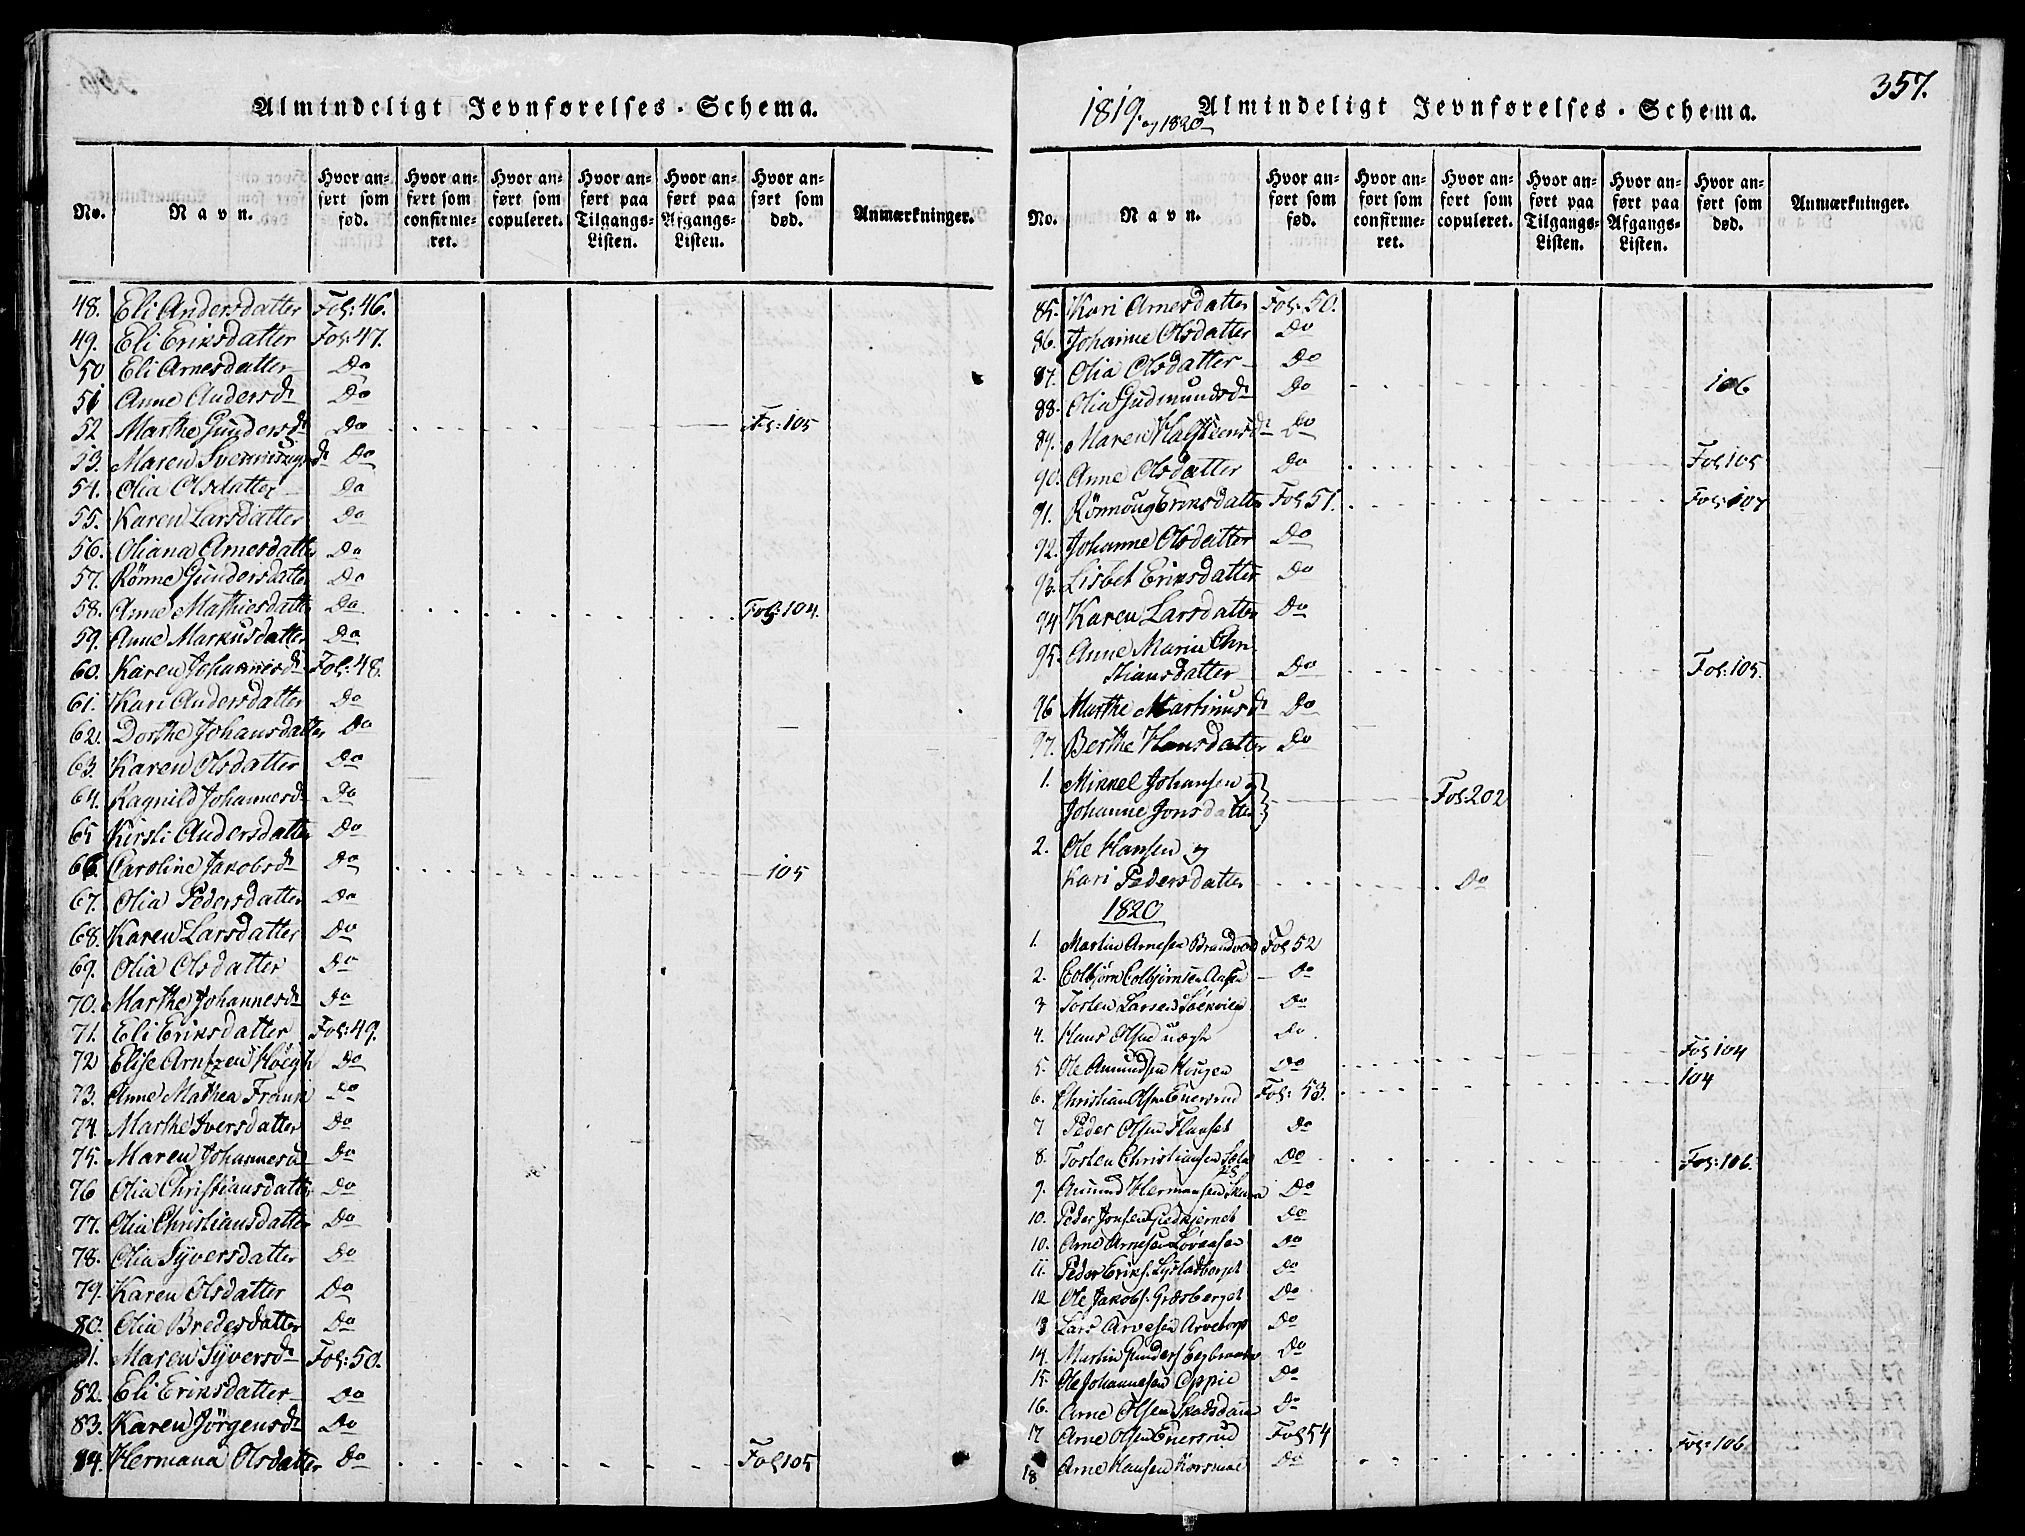 Almindeligt Jevnførelses-Schema.
No. Navn. Hvor anført som fød. Hvor anført som confirmeret. Hvor anført som copuleret. Hvor anført paa Tilgangs-Listen. Hvor anført paa Afgangs-Listen. Hvor anført som død. Anmærkninger.
48. Eli Andersdatter Fol: 46.
49. Eli Eriksdatter Fol: 47.
50 Eli Arnesdatter Do
51 Anne Andersd Do
52 Marthe Gundersd Do Fol: 105
53. Maren Do
54. Olia Olsdatter Do
55. Karen Larsdatter Do
56. Oliana Arnesdatter Do
57. Rönne Gundersdatter Do
58. Anne Mathiesdatter Do Fol: 104.
59. Anne Markusdatter Do
60. Karen Johannesd Fol: 48.
61. Kari Andersdatter Do
62. Dorthe Johansdatter Do
63. Karen Olsdatter Do
64. Ragnild Johannesd Do
65 Kirsti Andersdatter Do
66 Caroline Jakobsd Do 105
67. Olia Pedersdatter Do
68. Karen Larsdatter Do
69. Olia Olsdatter Do
70. Marthe Johannesd Do
71. Eli Eriksdatter Fol: 49.
72 Elise Arntzen Høegh Do
73. Anne Mathea Frank Do
74. Marthe Iversdatter Do
75. Maren Johannesd Do
76 Olia Christiansdatter Do
77. Olia Christiansdatter Do
78. Olia Syversdatter Do
79. Karen Olsdatter Do
80. Olia Bredesdatter Do
81. Maren Syversd Fol: 50.
82. Eli Eriksdatter Do
83. Karen Jörgensd Do
84. Hermana Olsdatter Do Fol 105
357.
1819. og 1820
Almindeligt Jevnførelses-Schema.
No. Navn. Hvor anført som fød. Hvor anført som confirmeret. Hvor anført som copuleret. Hvor anført paa Tilgangs-Listen. Hvor anført paa Afgangs-Listen. Hvor anført som død. Anmærkninger.
85. Kari Arnesdatter Fol: 50.
86. Johanne Olsdatter Do
87. Olia Olsdatter Do
88. Olia Gudmundsd Do 106
89. Maren Halsteensd Do
90. Anne Olsdatter Do Fol 105
91. Rönnoug Eriksdatter Fol 51. Fol: 107
92. Johanne Olsdatter Do
93. Lisbet Eriksdatter Do
94 Karen Larsdatter Do
95. Anne Maria Chri
stiansdatter Do Fol: 105.
96 Marthe Martinusd Do
97. Berthe Hansdatter Do
1. Mikkel Johansen og
Johanne Jonsdatter Fol: 202
2. Ole Hansen og
Kari Pedersdatter Do
1820
1. Martin Arnesen Brandvold Fol 52
2. Colbjørn Colbjørnsen Do
3 Tosten Larsen Do
4. Hans Olsen Do
5. Ole Amundsen Haugen Do Fol 104
6. Christian Olsen Enersrud Fol: 53. 104
7 Peder Olsen Do
8. Tosten Christiansen Do Fol: 106.
9. Amund Hermansen Do
10. Peder Jonsen Do
10. Arne Arnesen Do
11. Peder Eriks. Do
12 Ole Jakobs. Græsberget Do
13 Lars Arvesen Arvetorp Do
14. Martin Gunders Do
15. Ole Johannesen Do
16. Arne Olsen Do
17 Arne Olsen Enersrud Fol 54 Fol: 106
18 Arne Hansen Do